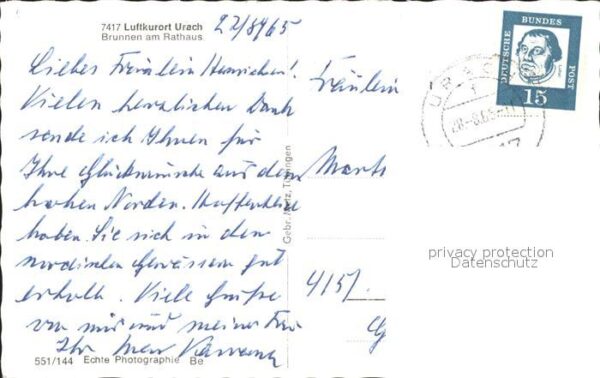 7417 Luftkurort Urach
Brunnen am Rathaus
22/8 65
Liebes Fräulein Henrichen!
Vielen herzlichen Dank
sende ich Ihnen für
Ihre Glückwünsche aus dem
hohen Norden. Hoffentlich
haben Sie sich in den
nordischen Gewässern gut
erholt. Viele Grüße
von mir und meiner Frau
Ihr
551/144 Echte Photographie Be
Gebr. Metz, Tübingen
Fräulein
4151
DEUTSCHE BUNDESPOST
15
URACH
privacy protection
Datenschutz